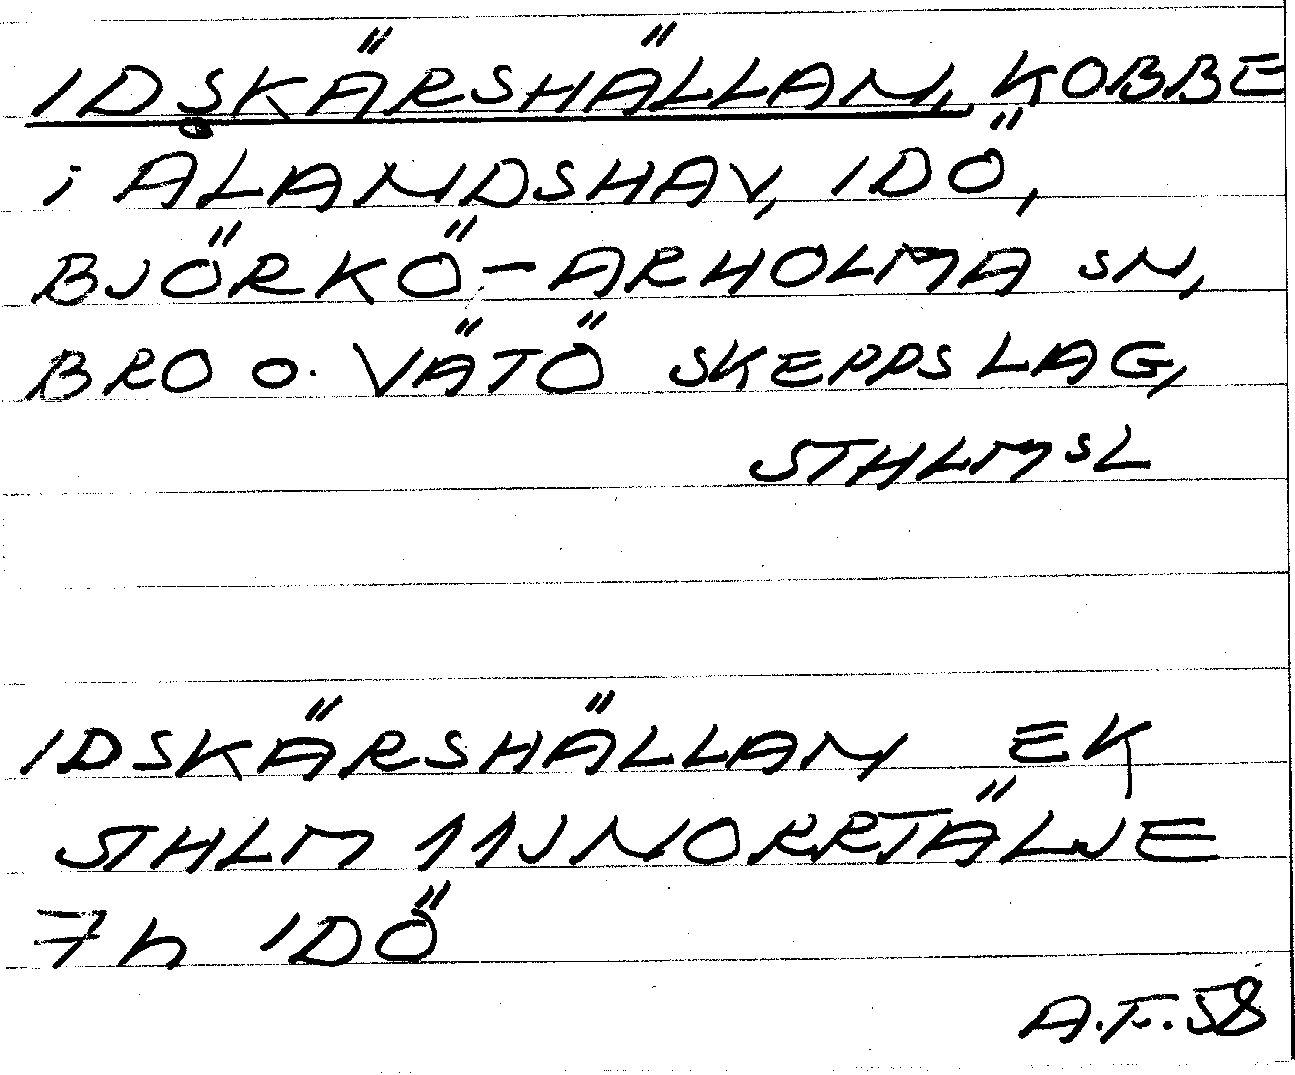 IDSKÄRSHÄLLAN, KOBBE
i ÅLANDSHAV, IDÖ,
BJÖRKÖ-ARHOLMA SN,
BRO O. VÄTÖ SKEPPSLAG,
STHLMSL
IDSKÄRSHÄLLAN EK
STHLM 11J NORRTÄLJE
7h IDÖ
A.F.58